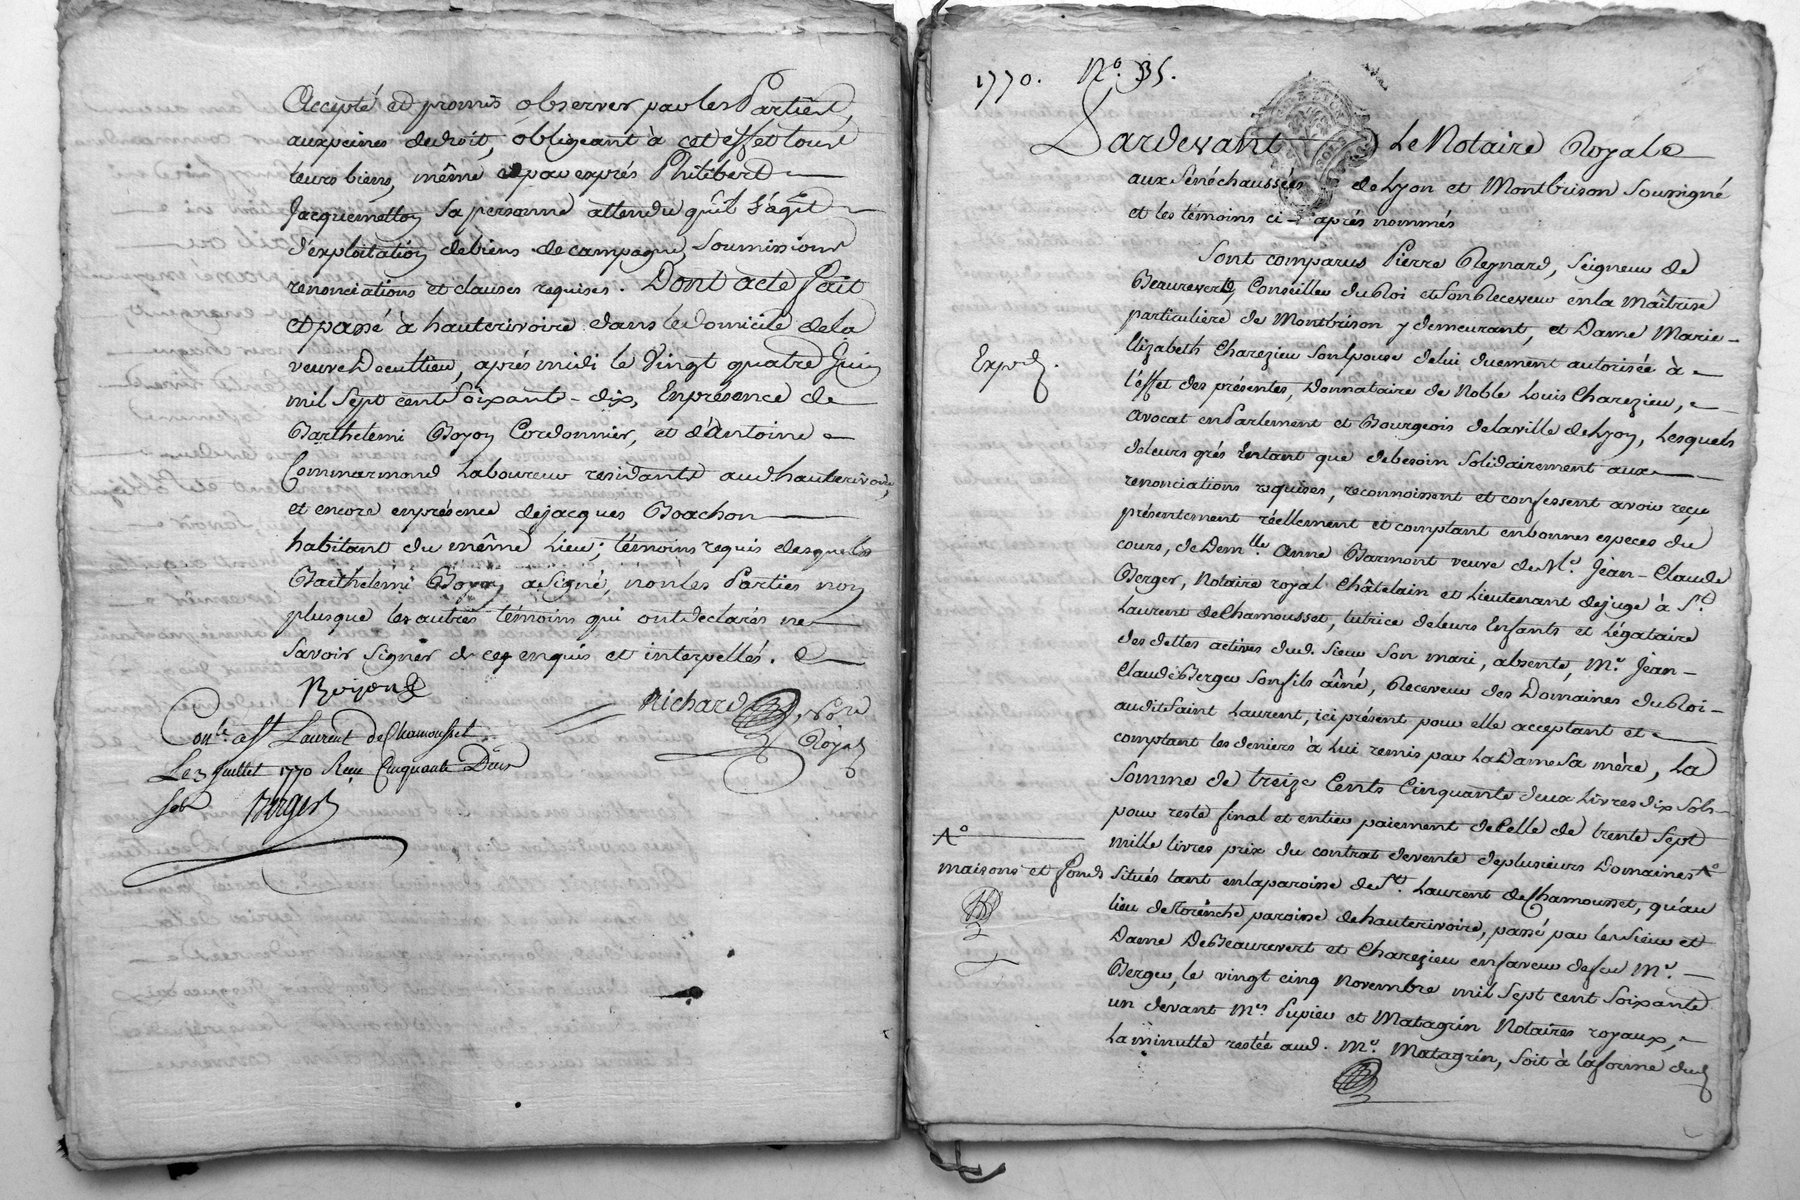 Accepté et promis observer par les Parties,
aux peines de droit, obligeant à cet effet tous
leurs biens, même par exprès Philibert
Jacquemetton sa personne attendu qu'il s'agit
d'exploitation de biens de campagne, Soumissions
renonciations et clauses requises. Dont acte Fait
et passé à hauterivoire dans le domicile de la
veuve Decultieu, après midi le Vingt quatre Juin
mil Sept cent Soixante-dix, En présence de
Barthelemi Boyon Cordonnier, et d'Antoine
Commarmond Laboureur residants aud. hauterivoire,
et encore en présence de jacques Boachon
habitant du même Lieu; témoins requis desquels
Barthelémi Boyon a Signé, non les Parties non
plus que les autres témoins qui ont declarés ne
Savoir Signer de ce enquis et interpellés.
Boyon
Richard, No.re
Royal
Con.lé a St Laurent de Chamousset
Le 3 Juillet 1770 Reçu Cinquante Dix
Sols Berger
1770. N.o 35.
Pardevant Le Notaire Royale
aux Sénéchaussées de Lyon et Montbrison Soussigné
et les témoins ci-après nommés
Sont comparus Pierre Reynard, Seigneur de
Beaurevert, Conseiller du Roi et Son Receveur en la Maîtrise
particulière de Montbrison y demeurant, et Dame Marie-
Elizabeth Charezieu Son Epouse de lui duement autorisée à
l'effet des présentes, Donnataire de Noble Louis Charezieu,
Exped.
avocat en Parlement et Bourgeois de la ville de Lyon, Lesquels
de leurs grés Entant que de besoin Solidairement aux
renonciations requises, reconnoissent et confessent avoir reçu
présentement réellement et comptant en bonnes especes du
cours, de Dem.lle Anne Barmont veuve de M.e Jean-Claude
Berger, Notaire royal Châtelain et Lieutenant de juge à S.t
Laurent de Chamousset, tutrice de leurs Enfants et Légataire
des dettes actives dud. Sieur Son mari, absente, M.r Jean-
Claude Berger Son fils aîné, Receveur des Domaines du Roi
audit Saint Laurent, ici présent pour elle acceptant et
comptant les deniers à Lui remis par La Dame Sa mère, La
Somme de treize Cents Cinquante deux Livres dix Sols
pour reste final et entier paiement de Celle de trente Sept
mille livres prix du contrat de vente de plusieurs Domaines A.o
A.o
maisons et fonds
Situés tant en la paroisse de S.t Laurent de Chamousset, qu'au
lieu de Florenche paroisse de hauterivoire, passé par les Sieur et
Dame De Beaurevert et Charezieu en faveur de feu M.r
Berger, le vingt cinq Novembre mil Sept cent Soixante
un devant M.es Pupier et Matagrin Notaires royaux,
La minutte restée aud. M.e Matagrin, Soit à la forme dud.